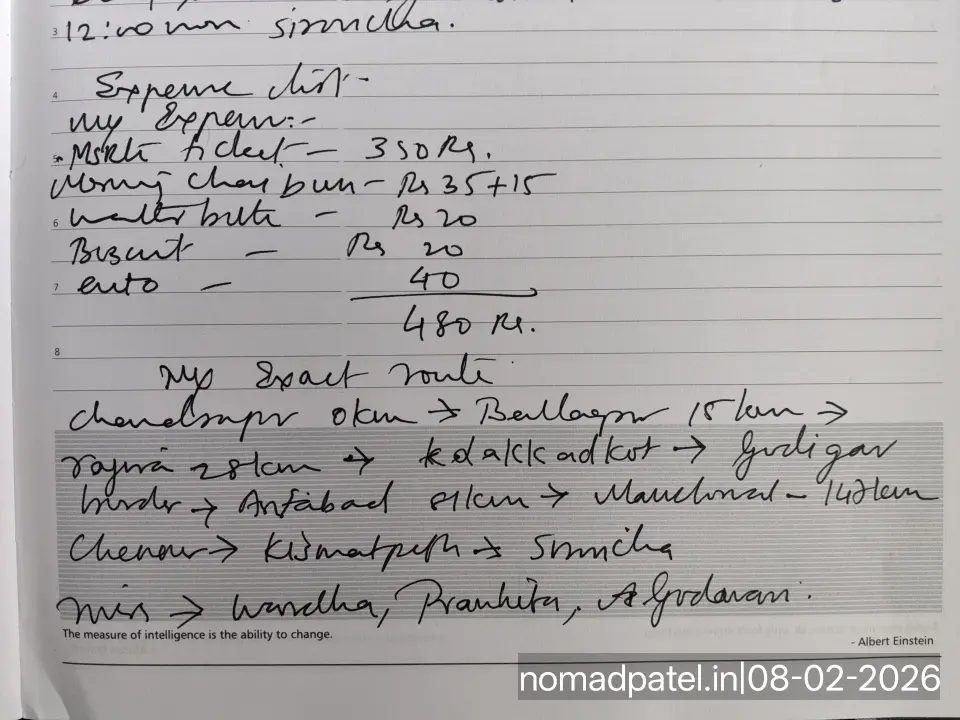 12:00 noon sironcha.
Expense list -
my Expense:-
MSRTC ticket - 350 Rs.
Morning Chai bun - Rs 35+15
water bottle - Rs 20
Biscuit - Rs 20
auto - 40
480 Rs.
My Exact route
chandrapur 0km → Ballarpur 15 km →
rajura 28km → → Gudigav
border → Asifabad 81km → Mancherial - 142km
Chennur → Kismatpeth → Sironcha
→ wardha, Pranhita, Godavari.
The measure of intelligence is the ability to change.
- Albert Einstein
nomadpatel.in|08-02-2026
3
4
5
6
7
8